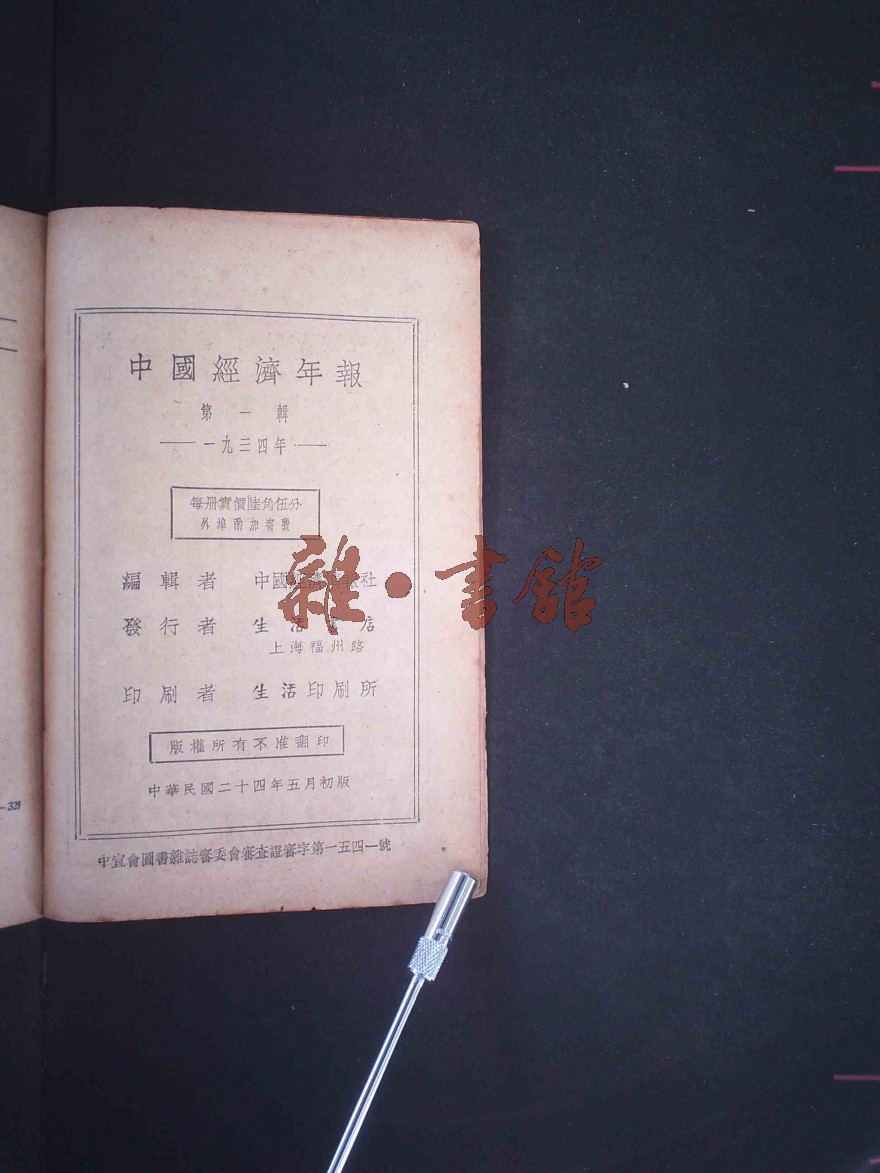 中國經濟年報
第一輯
一九三四年
每册實價陸角伍分
外埠酌加寄費
編輯者 中國經濟情報社
發行者 生活書店
上海福州路
印刷者 生活印刷所
版權所有不准翻印
中華民國二十四年五月初版
中宣會圖書雜誌審委會審查證審字第一五四一號
雜·書館